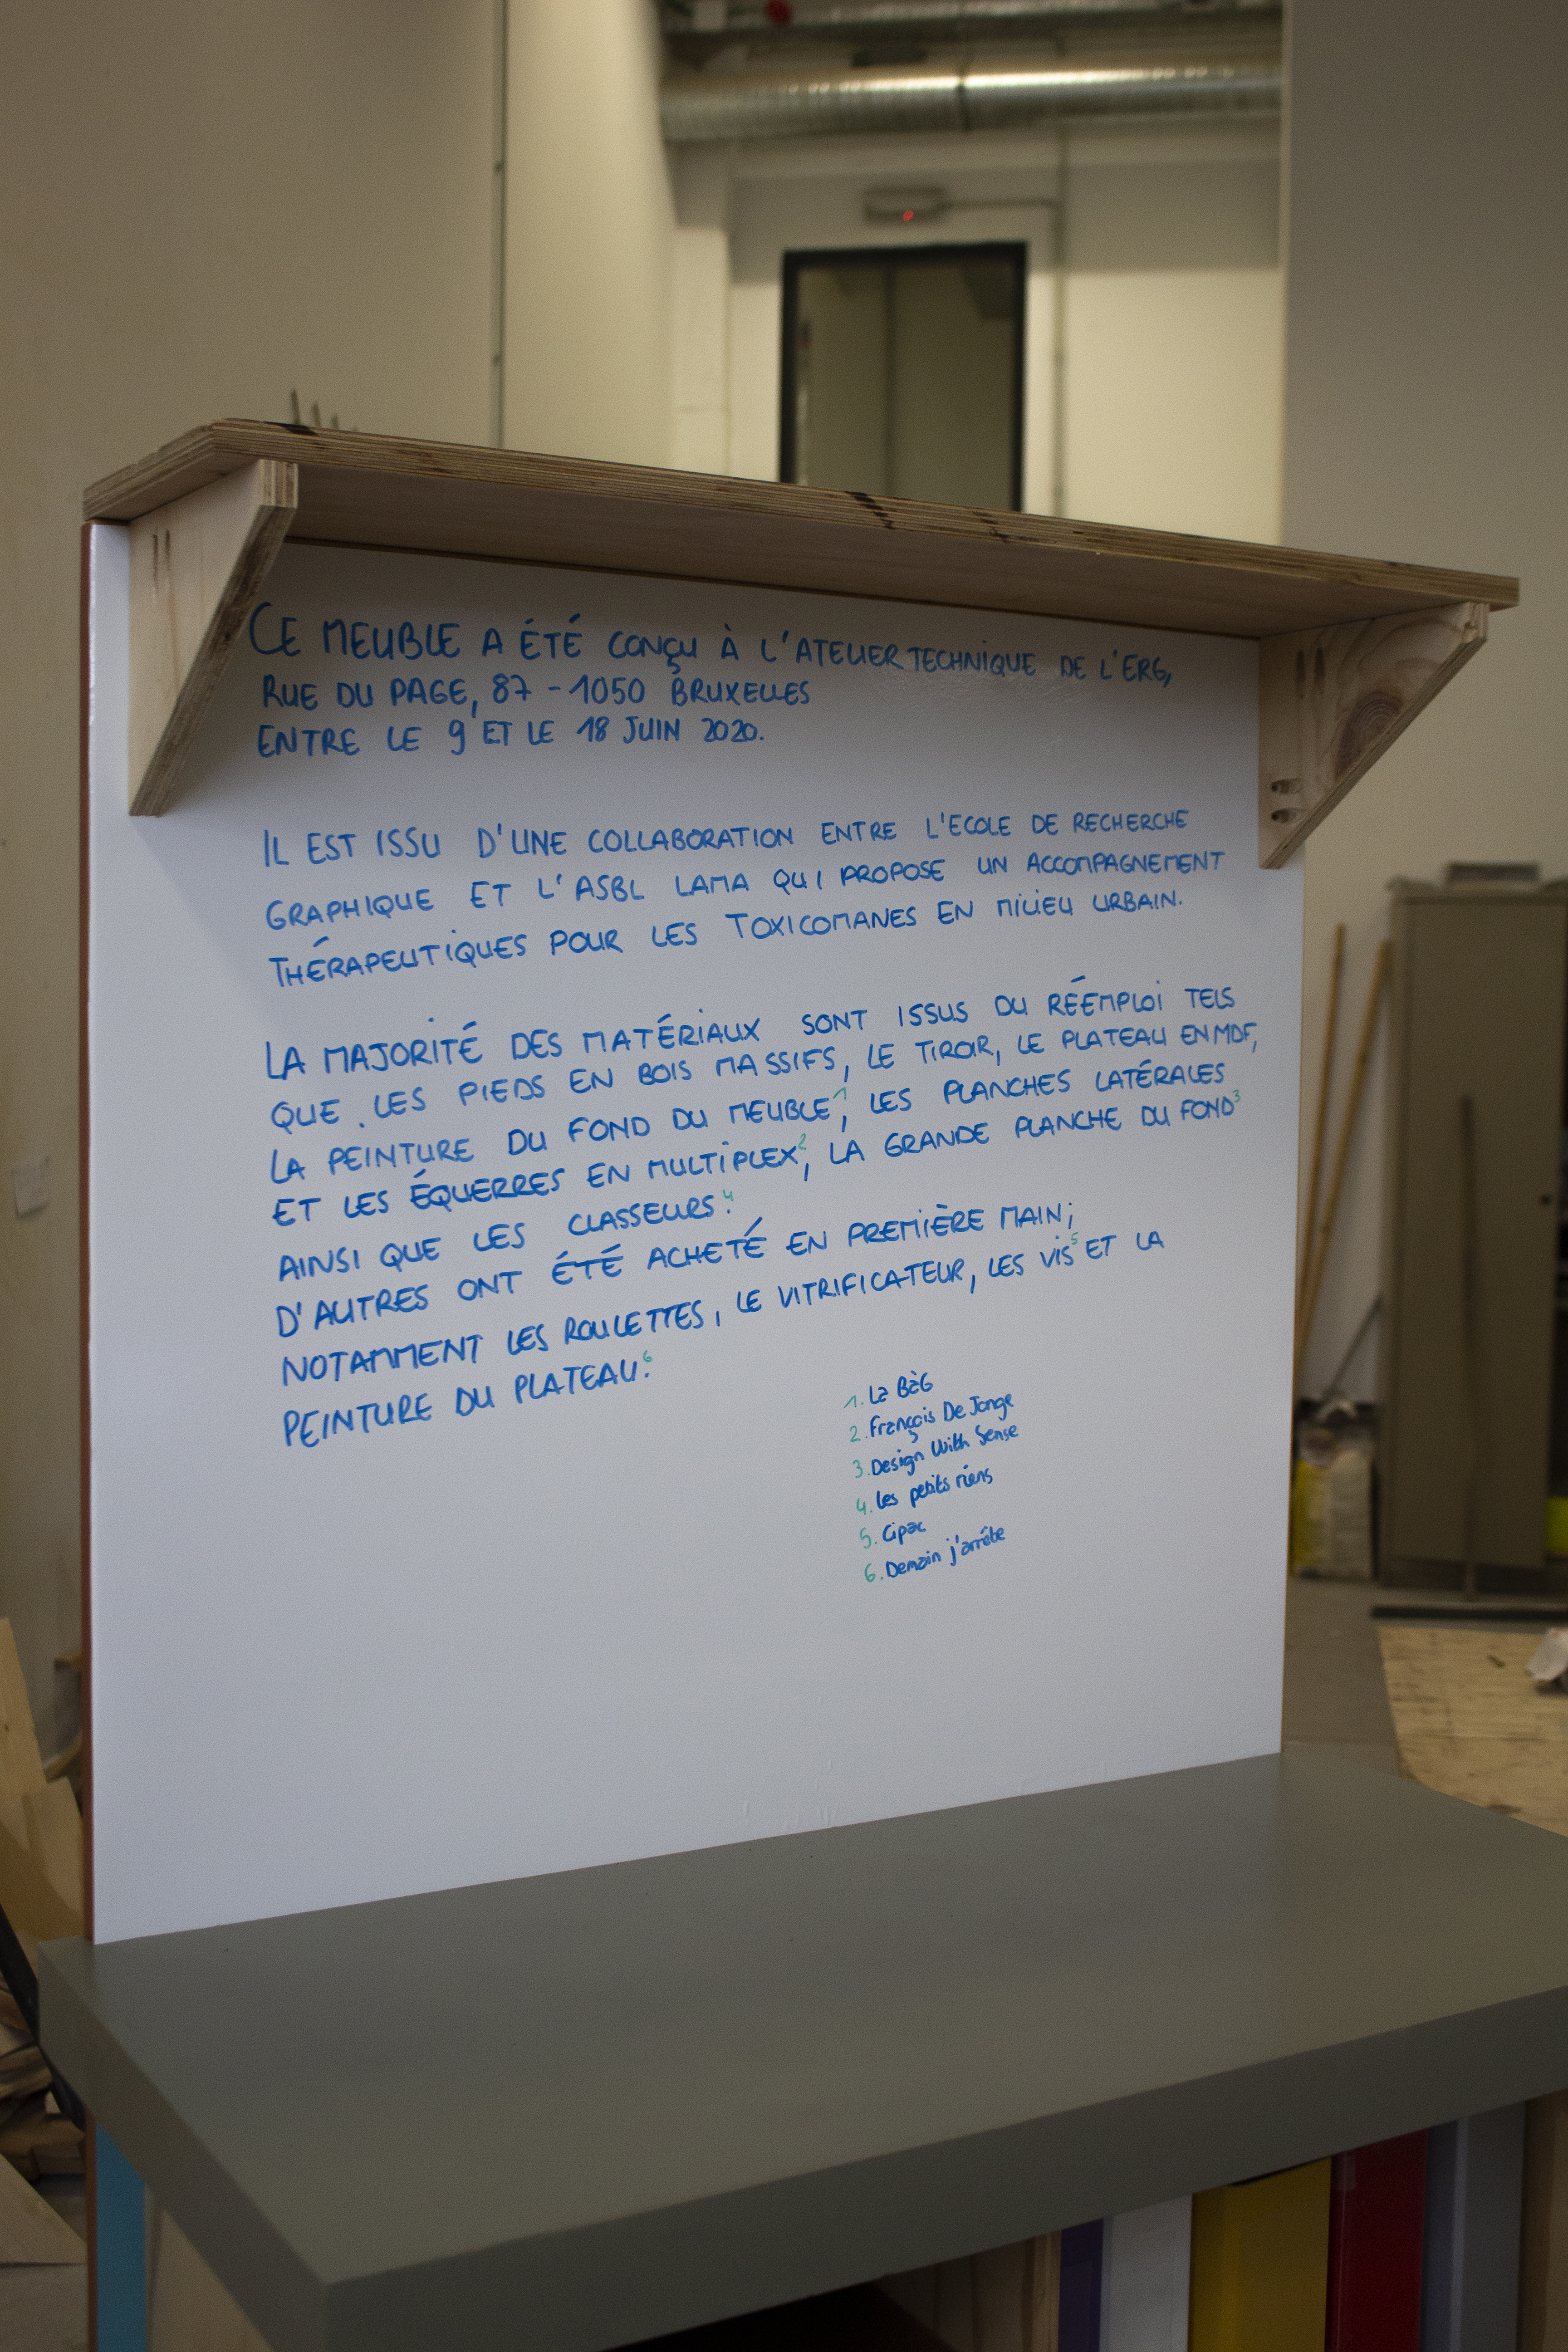 CE MEUBLE A ÉTÉ CONÇU À L'ATELIER TECHNIQUE DE L'ERG,
RUE DU PAGE, 87 - 1050 BRUXELLES
ENTRE LE 9 ET LE 18 JUIN 2020.
IL EST ISSU D'UNE COLLABORATION ENTRE L'ECOLE DE RECHERCHE
GRAPHIQUE ET L'ASBL LAMA QUI PROPOSE UN ACCOMPAGNEMENT
THÉRAPEUTIQUES POUR LES TOXICOMANES EN MILIEU URBAIN.
LA MAJORITÉ DES MATÉRIAUX SONT ISSUS DU RÉEMPLOI TELS
QUE LES PIEDS EN BOIS MASSIFS, LE TIROIR, LE PLATEAU EN MDF,
LA PEINTURE DU FOND DU MEUBLE¹, LES PLANCHES LATÉRALES
ET LES ÉQUERRES EN MULTIPLEX², LA GRANDE PLANCHE DU FOND³
AINSI QUE LES CLASSEURS⁴.
D'AUTRES ONT ÉTÉ ACHETÉ EN PREMIÈRE MAIN;
NOTAMMENT LES ROULETTES, LE VITRIFICATEUR, LES VIS⁵ ET LA
PEINTURE DU PLATEAU⁶.
1. La BàG
2. François De Jonge
3. Design With Sense
4. les petits riens
5. Cipac
6. Demain j'arrête